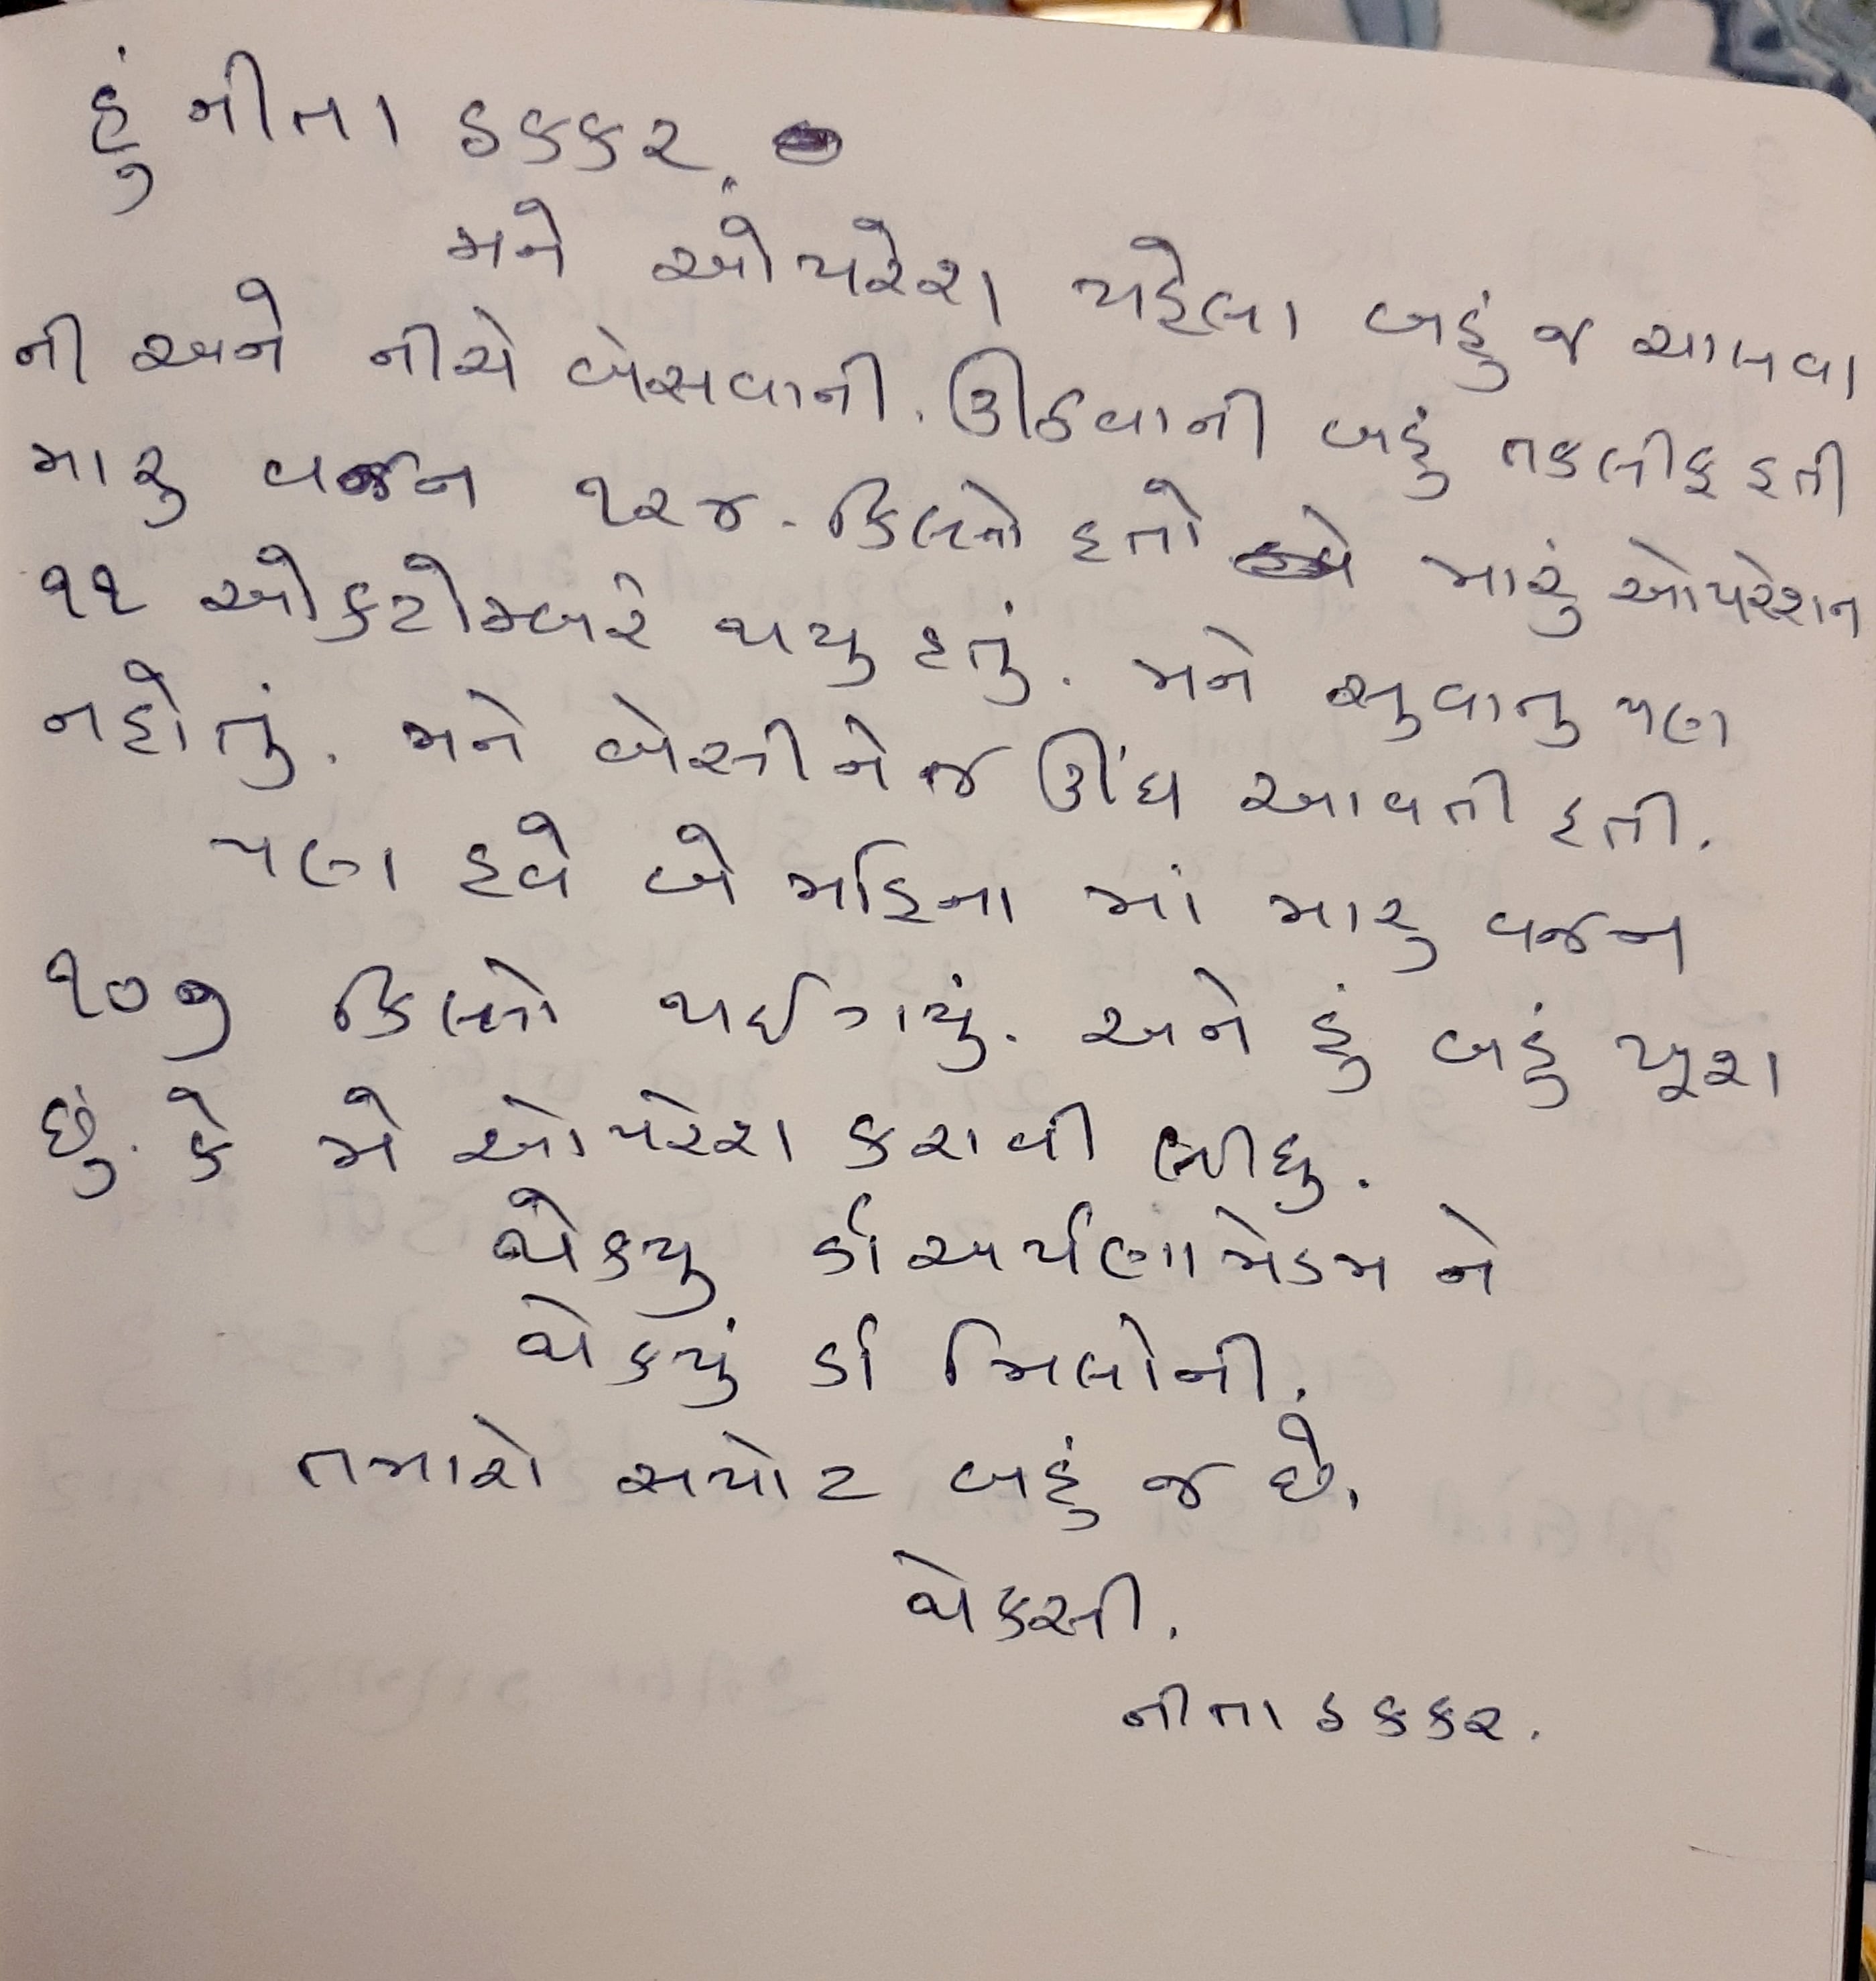 હું નીતા ઠકકર.
મને ઓપરેશ પહેલા બહું જ ચાલવા
ની અને નીચે બેસવાની. ઊઠવાની બહું તકલીફ હતી
મારુ વજન ૧૨૪. કિલો હતો મારું ઓપરેશન
૧૧ ઓકટોમ્બરે થયુ હતું. મને સુવાનુ પણ
નહોતું. મને બેસીને જ ઊંઘ આવતી હતી.
પણ હવે બે મહિના માં મારુ વજન
૧૦૭ કિલો થઈ ગયું. અને હું બહું ખૂશ
છું. કે મે ઓપરેશ કરાવી લીધુ.
થેકયુ ર્ડા અર્પણા મેડમ ને
થેકયું ર્ડા મિલોની.
તમારો સપોટ બહું જ છે.
થેકસી.
નીતા ઠકકર.